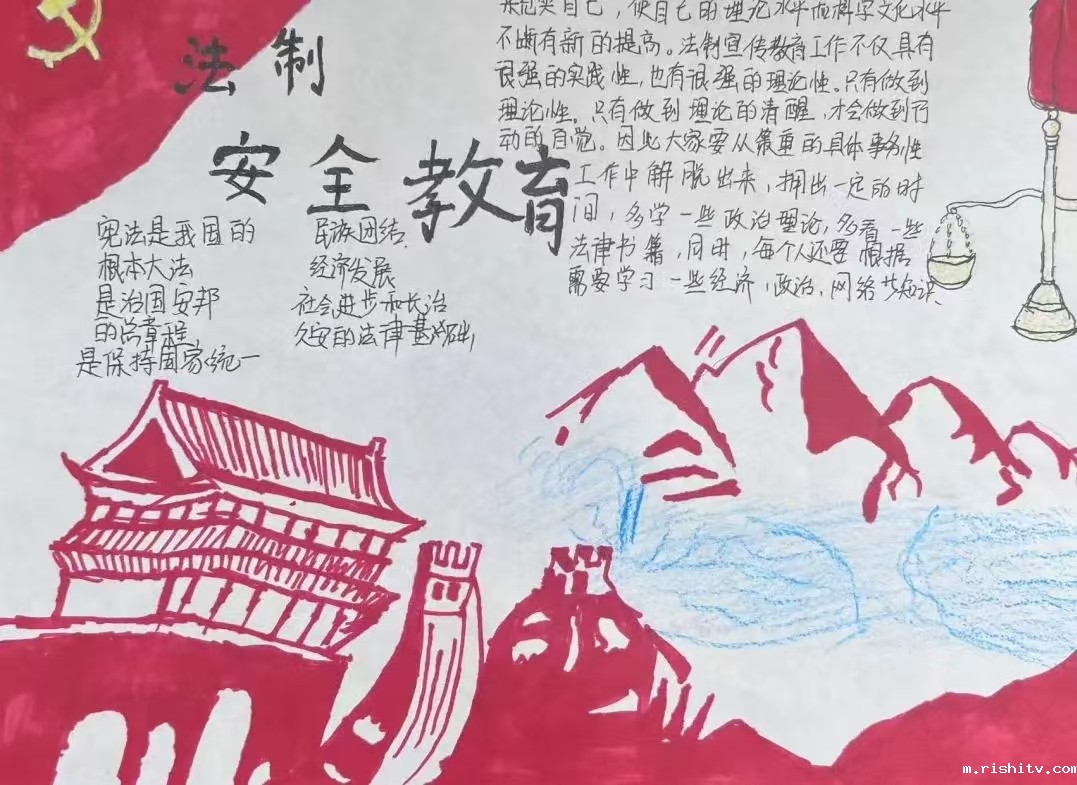 法制
安全教育
来充实自己，使自己的理论水平和科学文化水平
不断有新的提高。法制宣传教育工作不仅具有
很强的实践性，也有很强的理论性。只有做到
理论性。只有做到理论的清醒，才会做到行
动的自觉。因此大家要从繁重的具体事务性
工作中解脱出来，拥出一定的时
间，多学一些政治理论，多看一些
法律书籍，同时，每个人还要根据
需要学习一些经济，政治，网络步知识
宪法是我国的
根本大法
是治国安邦
的总章程
是保持国家统一
民族团结
经济发展
社会进步和长治
久安的法律基础
m.rishitv.com